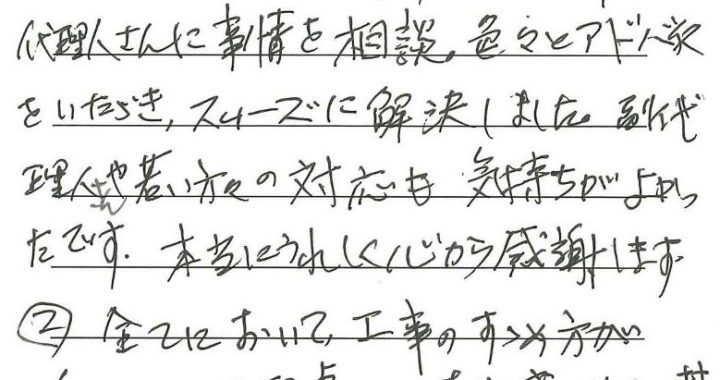 代理人さんに事情を相談。色々とアドバイス
をいただき、スムーズに解決しました。副代
理人さんや若い方々の対応も気持ちがよかっ
たです。本当にうれしく心から感謝します
② 全てにおいて、工事のすゝめ方が